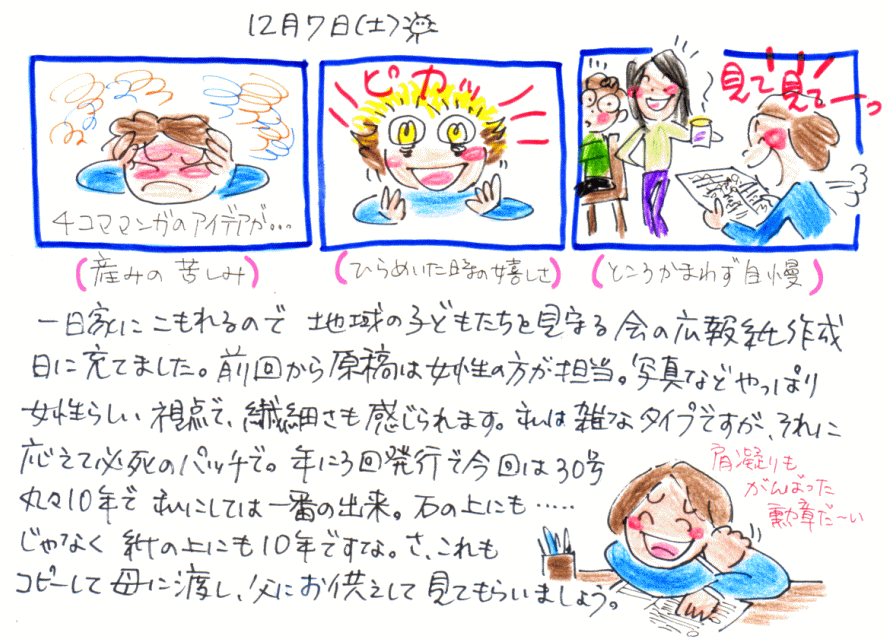 12月7日(土)
4コママンガのアイデアが...
ピカッ
見て見てーっ
(産みの苦しみ)
(ひらめいた時の嬉しさ)
(ところかまわず自慢)
一日家にこもれるので 地域の子どもたちを見守る会の広報紙作成
日に充てました。前回から原稿は女性の方が担当。写真などやっぱり
女性らしい視点で、繊細さも感じられます。私は雑なタイプですが、それに
応えて必死のパッチで。年に3回発行で今回は30号
丸々10年で私にしては一番の出来。石の上にも・・・・・
じゃなく 紙の上にも10年ですな。さ、これも
コピーして母に渡し、父にお供えして見てもらいましょう。
肩凝りも
がんばった
勲章だ〜い